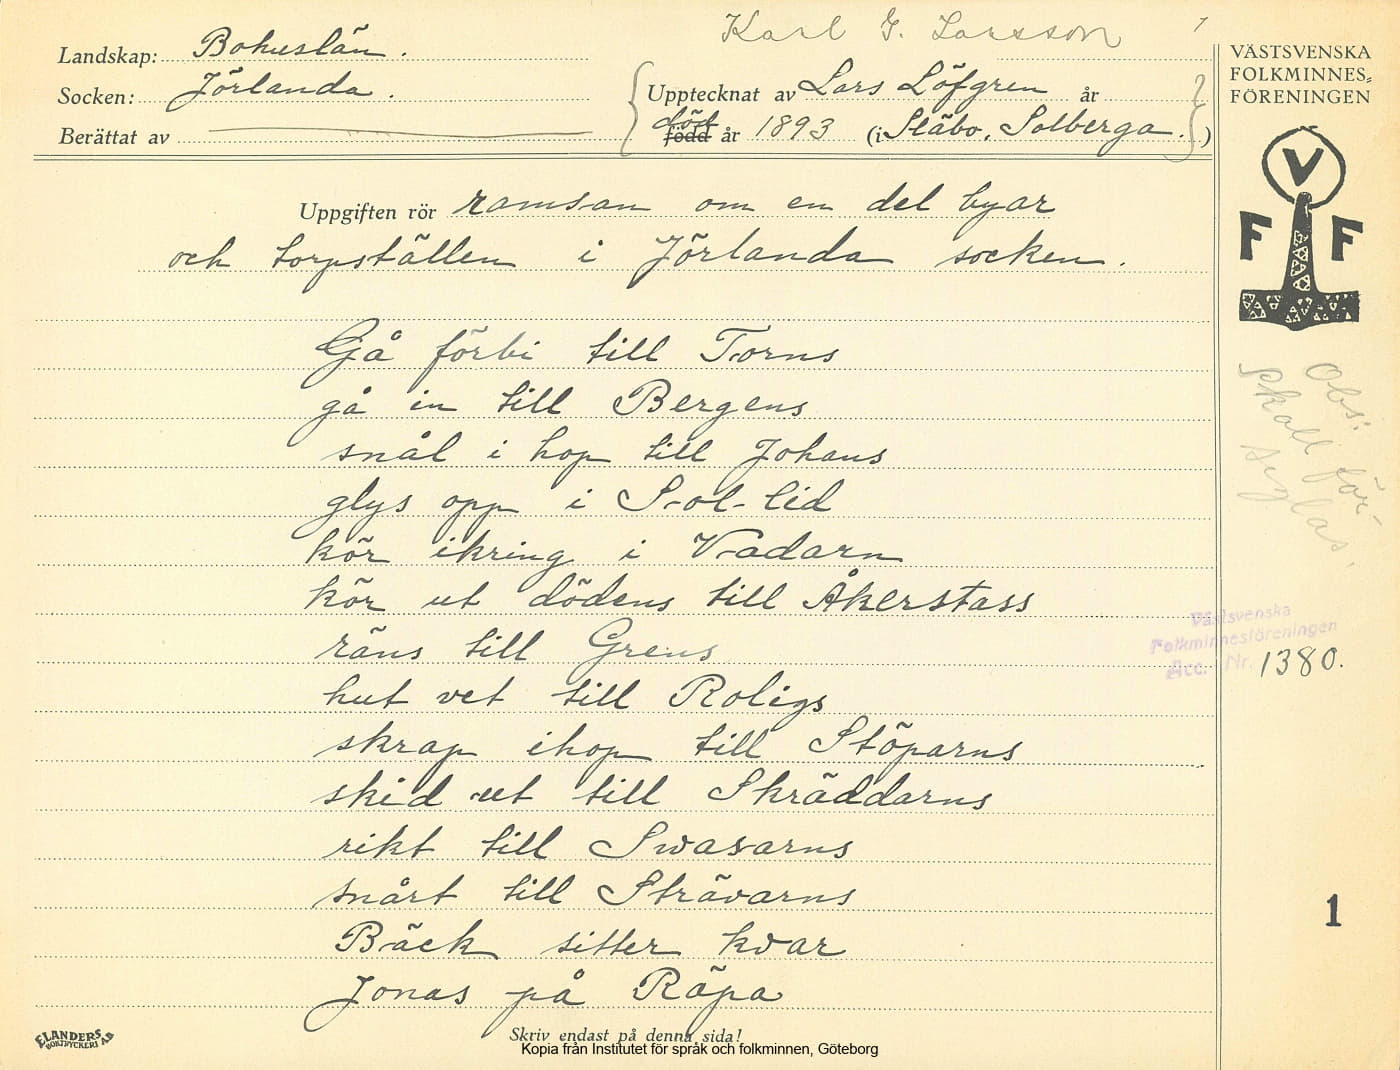 Karl G. Larsson 1
Landskap: Bohuslän.
Socken: Jörlanda.
Berättat av
Upptecknat av Lars Löfgren år
död
född år 1893 (i Släbo, Solberga.)
VÄSTSVENSKA
FOLKMINNES=
FÖRENINGEN
V
F F
Uppgiften rör ramsan om en del byar
och torpställen i Jörlanda socken.
Gå förbi till Torns
gå in till Bergens
snål i hop till Johans
glys opp i S-ol-lid
kör ikring i Vadarn
kör ut dödens till Åkerstass
räns till Grens
hut vet till Roligs
skrap ihop till Stöparns
skid ut till Skräddarns
rikt till Swasarns
snårt till Strävarns
Bäck sitter kvar
Jonas på Räpa
Obs:
Skall för-
seglas.
Västsvenska
Folkminnesföreningen
Acc. Nr. 1380.
1
ELANDERS
BOKTRYCKERI AB
Skriv endast på denna sida!
Kopia från Institutet för språk och folkminnen, Göteborg